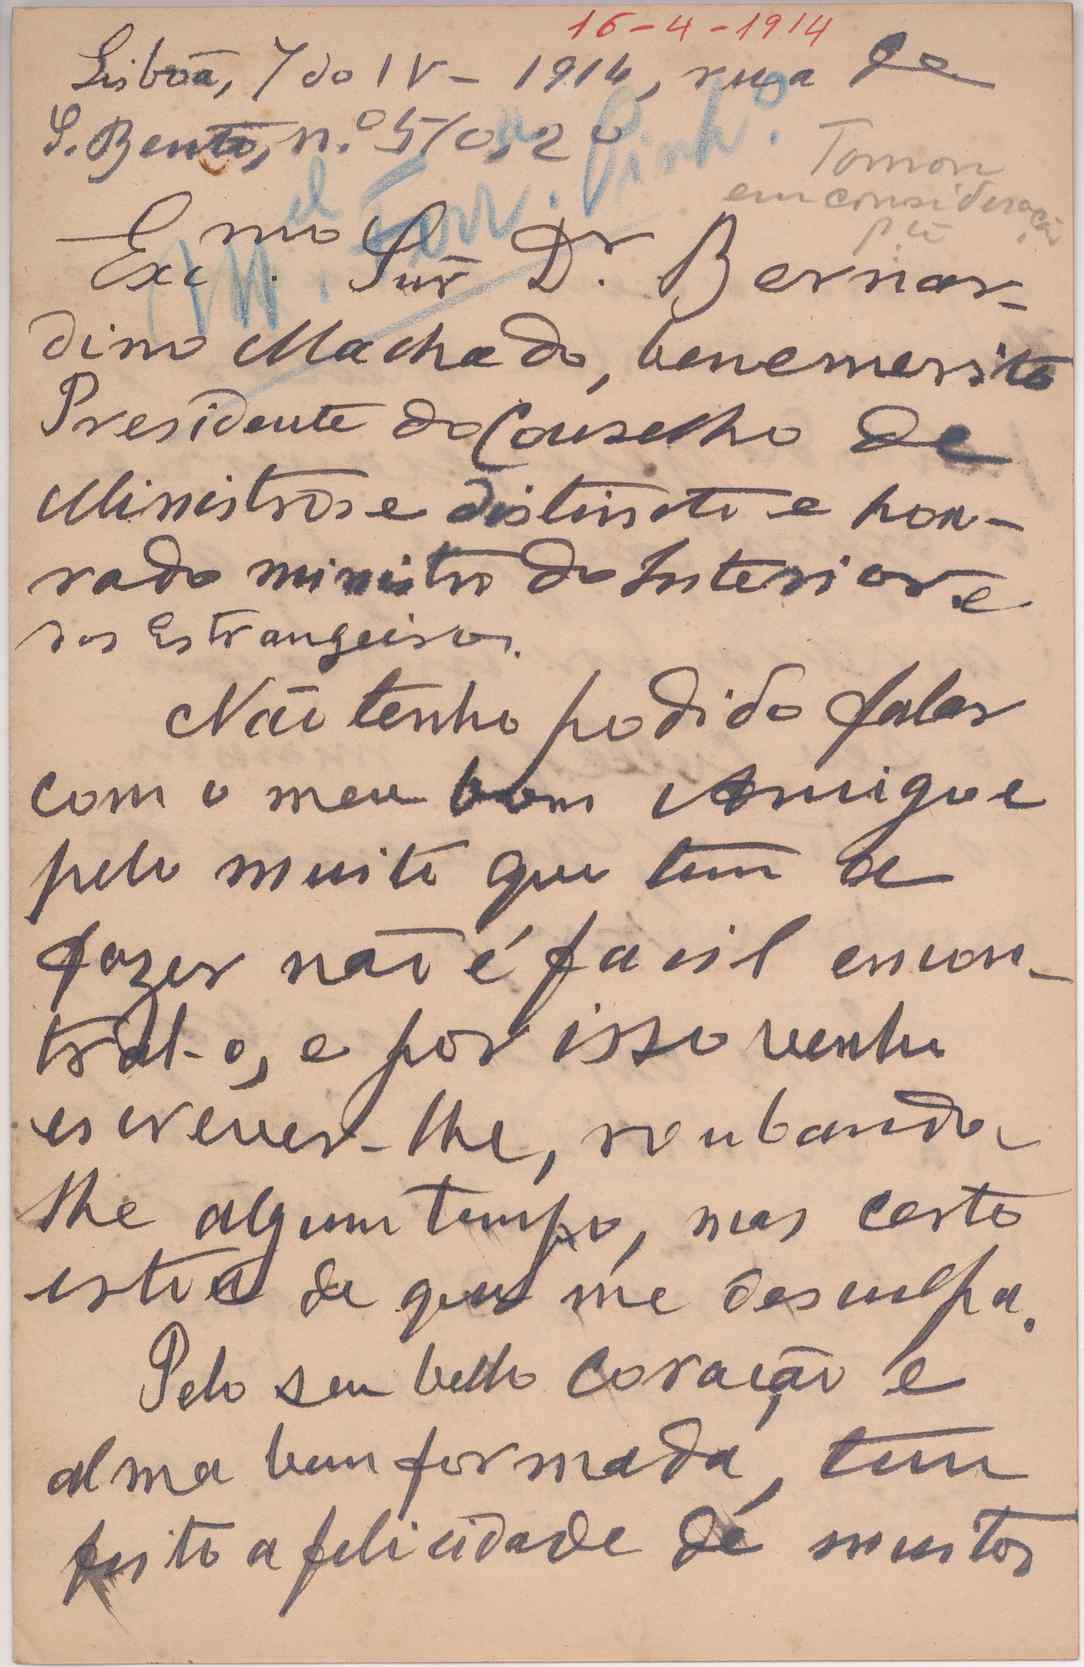 16-4-1914
Lisboa, 7 do IV - 1914, rua de
S. Bento, n.º 570, 2º
Tomou
em consideração
Exc.mo Snr Dr. Bernar-
dino Machado, benemerito
Presidente do Conselho de
Ministros e distincto e hon-
rado ministro do Interior e
dos Estrangeiros.
Não tenho podido falar
com o meu bom Amigo e
pelo muito que tem de
fazer não é facil encon-
tral-o, e por isso venho
escrever-lhe, roubando-
lhe algum tempo, mas certo
estou de que me desculpa.
Pelo seu bello coração e
alma bem formada, tem
feito a felicidade de muitos